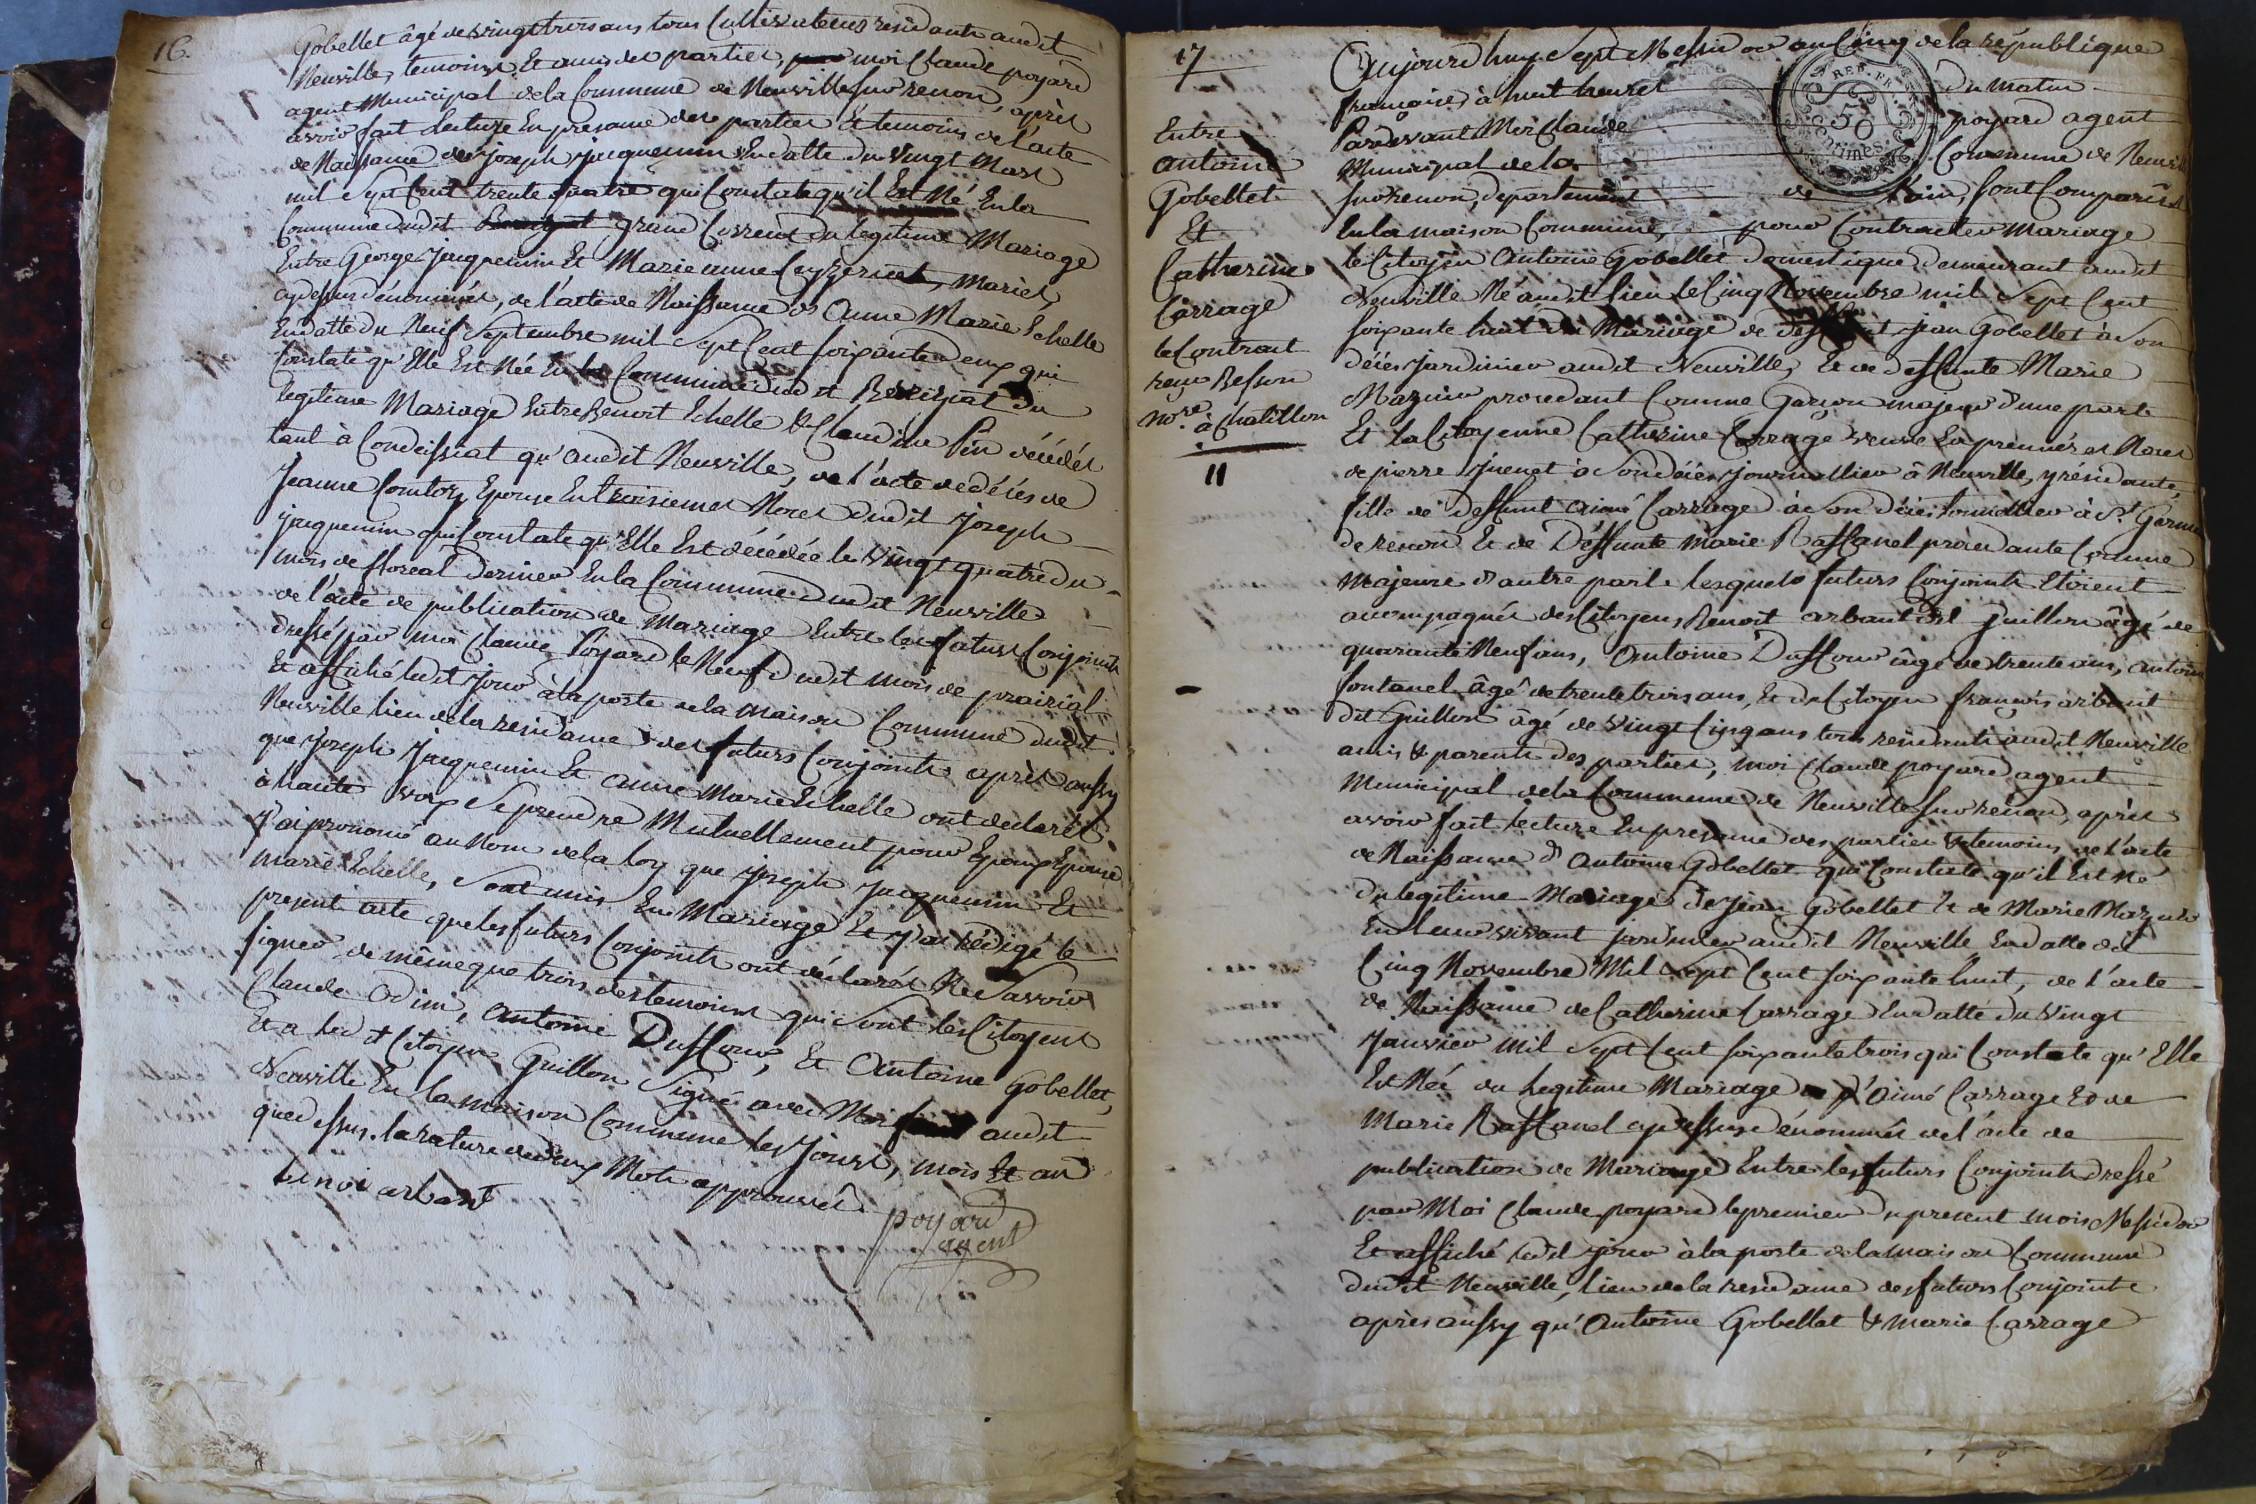 16.
Gobellet âgé de vingt trois ans tous Cultivateurs residants audit
Neuville, temoins Et amis des parties, moi Claude poyard
agent Municipal de la Commune de Neuville sur renon, après
avoir fait Lecture En presance des parties Et temoins de l'acte
de Naissance de joseph jacquemin En datte du vingt Mars
mil Sept Cent trente quatre qui Constate qu'il Est Né En la
Commune dudit grand Corrent du legitime Mariage
Entre George Jacquemin Et Marie anne Mariés
cy dessus dénommés, de l'acte de Naissance d'Anne Marie Echelle
En datte du Neuf Septembre mil Sept Cent soixante deux qui
Constate qu'Elle Est Née En la Commune dudit du
legitime Mariage Entre Benoit Echelle & Claudine Pin décédés
tant à Condeissiat qu'audit Neuville, de l'acte de décés de
Jeanne Epouse En troisiemes Noces dudit Joseph
jacquemin qui Constate qu'Elle Est décédée le vingt quatre du
mois de floréal dernier En la Commune dudit Neuville
de l'acte de publication de Mariage Entre les futurs Conjoints
dressé par moi Claude Poyard le Neuf dudit mois de prairial
Et affiché ledit jour à la porte de la maison Commune dudit
Neuville lieu de la residance des futurs Conjoints après aussy
que joseph Jacquemin Et anne Marie Echelle ont déclaré
à haute voix Se prendre Mutuellement pour Epoux Epouse
J'ai prononcé au Nom de la Loy que joseph Jacquemin Et
marie Echelle, Sont unis En Mariage Et j'ai rédigé le
present acte que les futurs Conjoints ont déclarés Ne Savoir
signer de même que trois des temoins qui Sont les Citoyens
Claude Odin, Antoine Duffour, Et Antoine Gobellet,
Et a ledit Citoyen Guillon Signé avec Moi audit
Neuville En la maison Commune les Jours, mois Et an
que dessus. la rature de deux Mots approuvée.
benoi arbant
poyard
agent
17
Entre
antoine
Gobellet
Et
Catherine
Carrage
le Contrat
reçu Besson
nore. à Chatillon
11
Aujourd'huy Sept Messidor an Cinq de la république
française, à huit heures du matin
REP. FR.
50
centimes
Pardevant Moi Claude poyard agent
Municipal de la Commune de Neuville
sur renon, departement de l'ain, sont Comparûs
En la maison Commune, pour Contracter mariage
le Citoyen Antoine Gobellet domestique demeurant audit
Neuville Né audit lieu le Cinq Novembre mil Sept Cent
soixante huit du Mariage de deffunt jean Gobellet à Son
décès Jardinier audit Neuville, Et de deffunte Marie
Mazuir procedant Comme Garçon majeur d'une part
Et la Citoyenne Catherine Carrage veuve En premières Noces
de pierre Juenet à Son décés Journallier à Neuville, y résidante,
fille de deffunt Aimé Carrage à Son décés Journallier à St. Germain
de renon Et de Déffunte Marie Raffanel procedante Comme
Majeure d'autre part. lesquels futurs Conjoints Etoient
accompagnés des Citoyens Benoit arbant dit Guillon âgé de
quarante Neuf ans, Antoine Duffour âgé de trente ans, antoine
fontanel âgé de trente trois ans, Et du Citoyen françois arbant
dit Guillon âgé de vingt Cinq ans tous residants audit Neuville
amis & parents des parties, moi Claude poyard agent
Municipal de la Commune de Neuville sur rénon, après
avoir fait lecture En presance des parties & temoins, de l'acte
de Naissance d'Antoine Gobellet qui Constate qu'il Est Né
du legitime Mariage de Jean Gobellet & de Marie Mazuir
En leur vivant jardinier audit Neuville En datte du
Cinq Novembre Mil Sept Cent soixante huit, de l'acte
de Naissance de Catherine Carrage En datte du vingt
Janvier mil Sept Cent soixante trois qui Constate qu'Elle
Est Née du Legitime Mariage d'aimé Carrage Et de
Marie Raffanel cy dessus dénommés de l'acte de
publication de Mariage Entre les futurs Conjoints dressé
par Moi Claude poyard le premier du present mois Messidor
Et affiché ledit jour à la porte de la maison Commune
dudit Neuville, lieu de la residance des futurs Conjoints
après aussy qu'Antoine Gobellet & marie Carrage